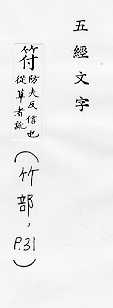 五經文字
符防夫反信也
從草者訛
(竹部,
P.31)